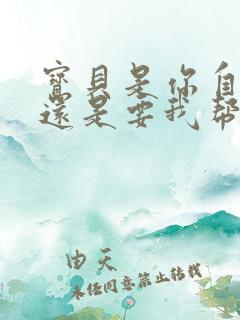 寶貝是你自
還是要我幫
由天
未經同意禁止轉載